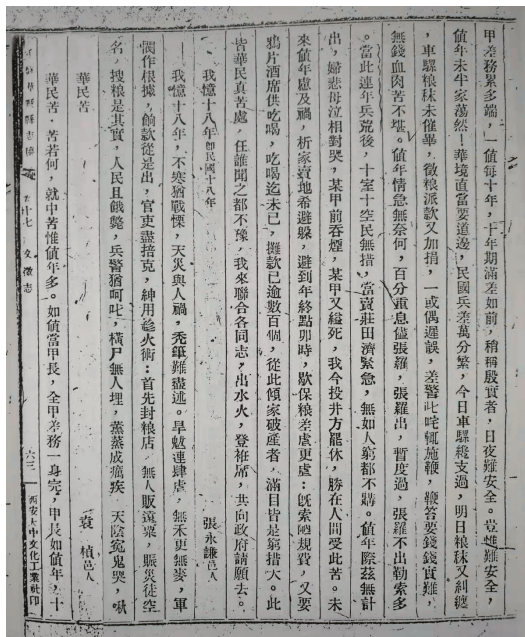 甲差務累多端，一值每十年，十年期滿差如前，稍稱殷實者，日夜難安全。豈進難安全，
值年未半家蕩然，華境直當要道邊，民國兵差萬分繁，今日車騾纔支過，明日粮秣又糾纏
，車騾粮秣未催畢，徵粮派款又加捐，一或偶遲誤，差警叱咤輒施鞭，鞭笞要錢錢實難，
無錢血肉苦不堪。值年情急無奈何，百分重息儘張羅，張羅出，暫度過，張羅不出勒索多
。當此連年兵荒後，十室十空民無措，當賣莊田濟緊急，無如人窮都不購。值年際茲無計
出，婦悲母泣相對哭，某甲前吞煙，某甲又縊死，我今投井方罷休，勝在人間受此苦。未
來值年慮及禍，析家賣地希避躲，避到年終點卯時，歇保粮差虐更虐：既索陋規費，又要
鴉片酒席供吃喝，吃喝迄未已，攤款已逾數百個，從此傾家破產者，滿目皆是窮措大。此
皆華民真苦處，任誰聞之都不豫，我來聯合各同志，出水火，登袵席，共向政府請願去。
我憶十八年 即民國十八年 張永謙 邑人
我憶十八年，不寒猶戰慄，天災與人禍，禿筆難盡述。旱魃連肆虐，無禾更無麥，軍
閥作根據，餉款從是出，官吏盡掊克，紳用趁火術：首先封粮店，無人販遠粟，賑災徒空
名，搜粮是其實，人民且餓斃，兵警猶呵叱，橫尸無人埋，薰蒸成癘疾，天陰冤鬼哭，啾
華民苦 袁楨 邑人
華民苦，苦若何，就中苦惟值年多。如值當甲長，全甲差務一身完，甲長如值年，十
華縣縣志稿 卷十七 文徵志 六三 西安大中文化工業社印